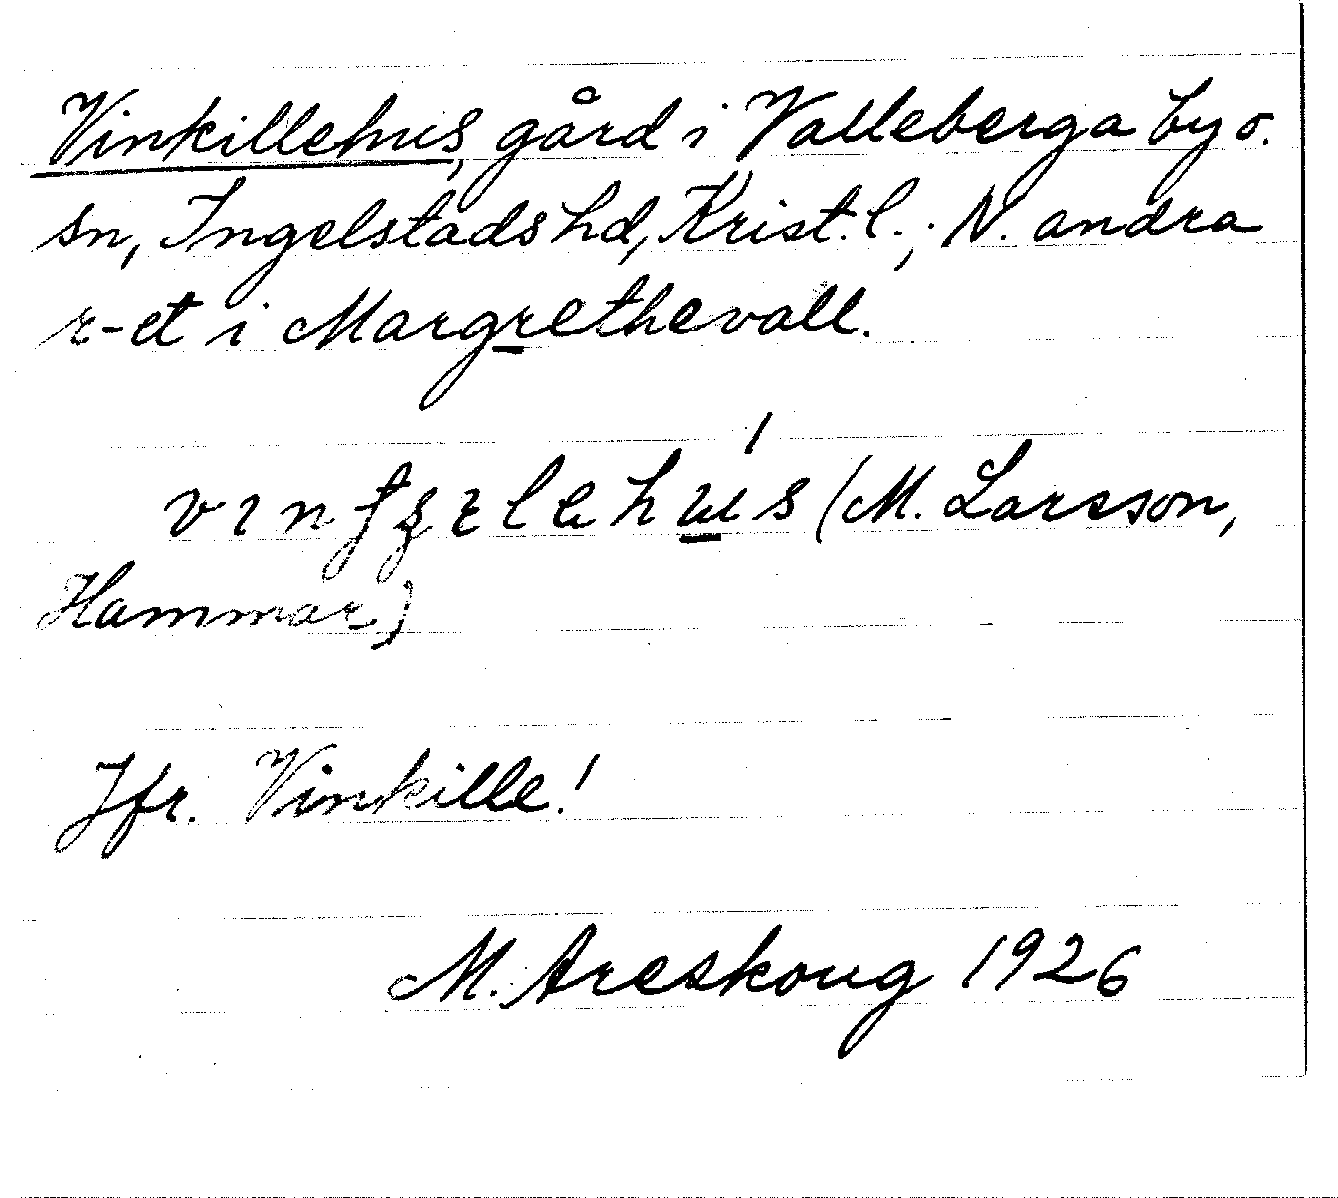 Vinkillehus, gård i Valleberga by o.
sn, Ingelstads hd, Krist. l.; N. andra
r-et i Margrethevall.
Hammar)
(M. Larsson,
Jfr. Vinkille!
M. Areskoug 1926